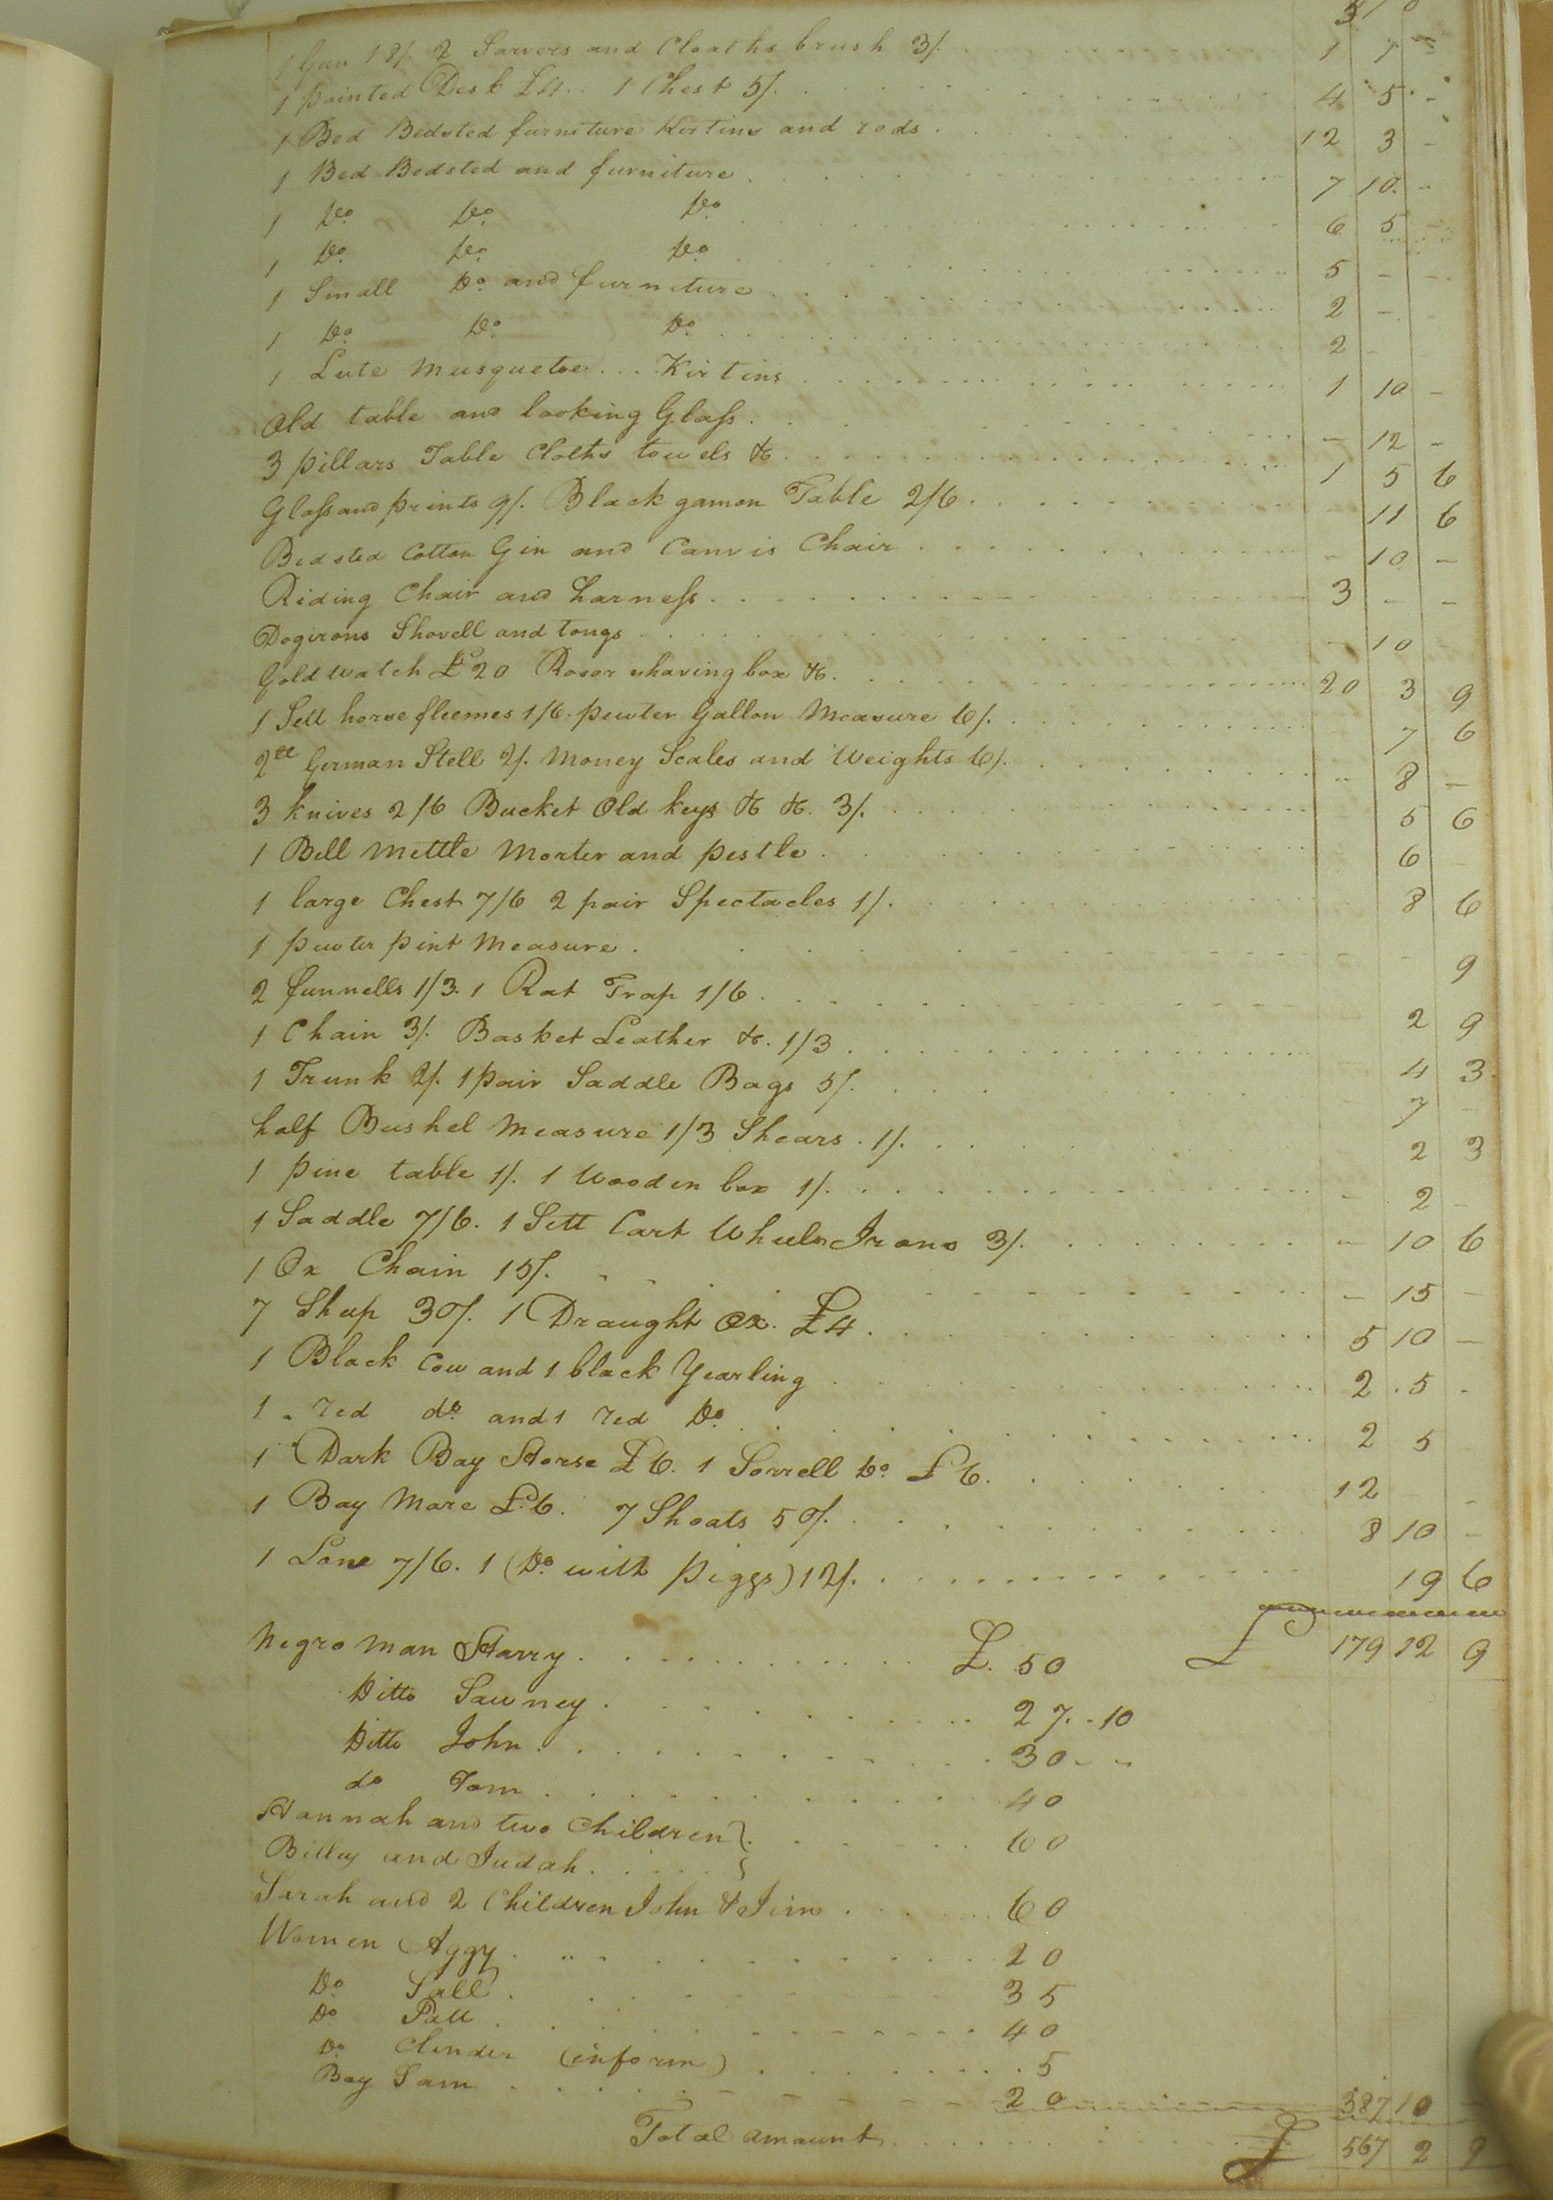 1 Gun 18/. 2 Sarvers and Cloaths brush 3/. 1 1 -
1 painted Desk £4.. 1 Chest 5/. 4 5 -
1 Bed Bedsted furniture Kirtins and rods. 12 3 -
1 Bed Bedsted and furniture. 7 10 -
1 Do. Do. Do. 6 5 -
1 Do. Do. Do. 5 - -
1 Small Do. and furniture 2 - -
1 Do. Do. Do. 2 -
1 Lute Musquetoe... Kirtins 1 10 -
Old table and looking Glass. - 12 -
3 pillars Table Cloths towels &c. 1 5 6
Glass and prints 9/. Black gamon Table 2/6. 11 6
Bedsted Cotton Gin and Canvis Chair - 10 -
Riding Chair and harness. 3 - -
Dogirons Shovell and tongs - 10 -
Gold watch £20 Rasor shaving box &c. 20 3 9
1 Sett horse fleemes 1/6. pewter Gallon Measure 6/. 7 6
2 German Stell 2/. Money Scales and Weights 6/. - 8 -
3 knives 2/6 Bucket Old keys &c &c. 3/. 5 6
1 Bell Mettle Morter and pestle. 6 -
1 large Chest 7/6 2 pair Spectacles 1/. 8 6
1 pewter pint Measure. - - 9
2 funnells 1/3. 1 Rat Trap 1/6. 2 9
1 Chain 3/. Basket Leather &c. 1/3. 4 3
1 Trunk 2/. 1 pair Saddle Bags 5/. 7 -
half Bushel Measure 1/3 Shears. 1/. 2 3
1 pine table 1/. 1 Wooden box 1/. - 2 -
1 Saddle 7/6. 1 Sett Cart Wheels Irons 3/. - 10 6
1 Ox Chain 15/. - 15 -
7 Sheep 30/. 1 Draught Ox. £4. 5 10 -
1 Black Cow and 1 black Yearling 2 . 5 .
1 . red do. and 1 red Do. 2 5
1 Dark Bay Horse £6. 1 Sorrell Do. £6. 12 -
1 Bay Mare £.6. 7 Shoats 50/. 8 10 -
1 Sow 7/6. 1 (Do. with piggs) 12/. 19 6
£ 179 12 9
Negro Man Harry. £. 50
Ditto Sawney. 27..10
Ditto John. 30 - -
do Tom. 40
Hannah and two Children }
Billey and Judah. } 60
Sarah and 2 Children John & Jim. 60
Women Aggy. 20
Do. Sall. 35
Do. Patt. 40
Do. Clender (inform). 5
Boy Sam. 20 387 10 -
Total amount. £ 567 2 9